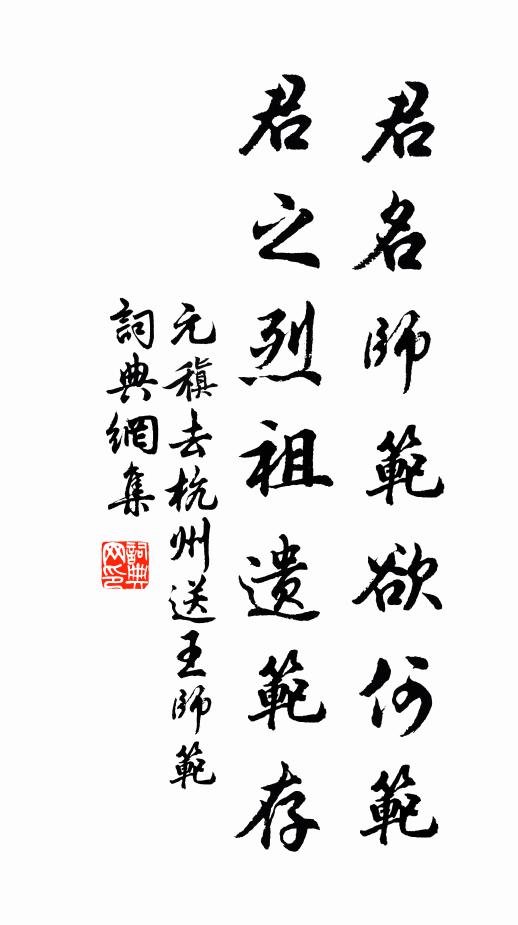 君名師範欲何範
君之烈祖遺範存
元稹去杭州送王師範
詞典網集
詞典网印